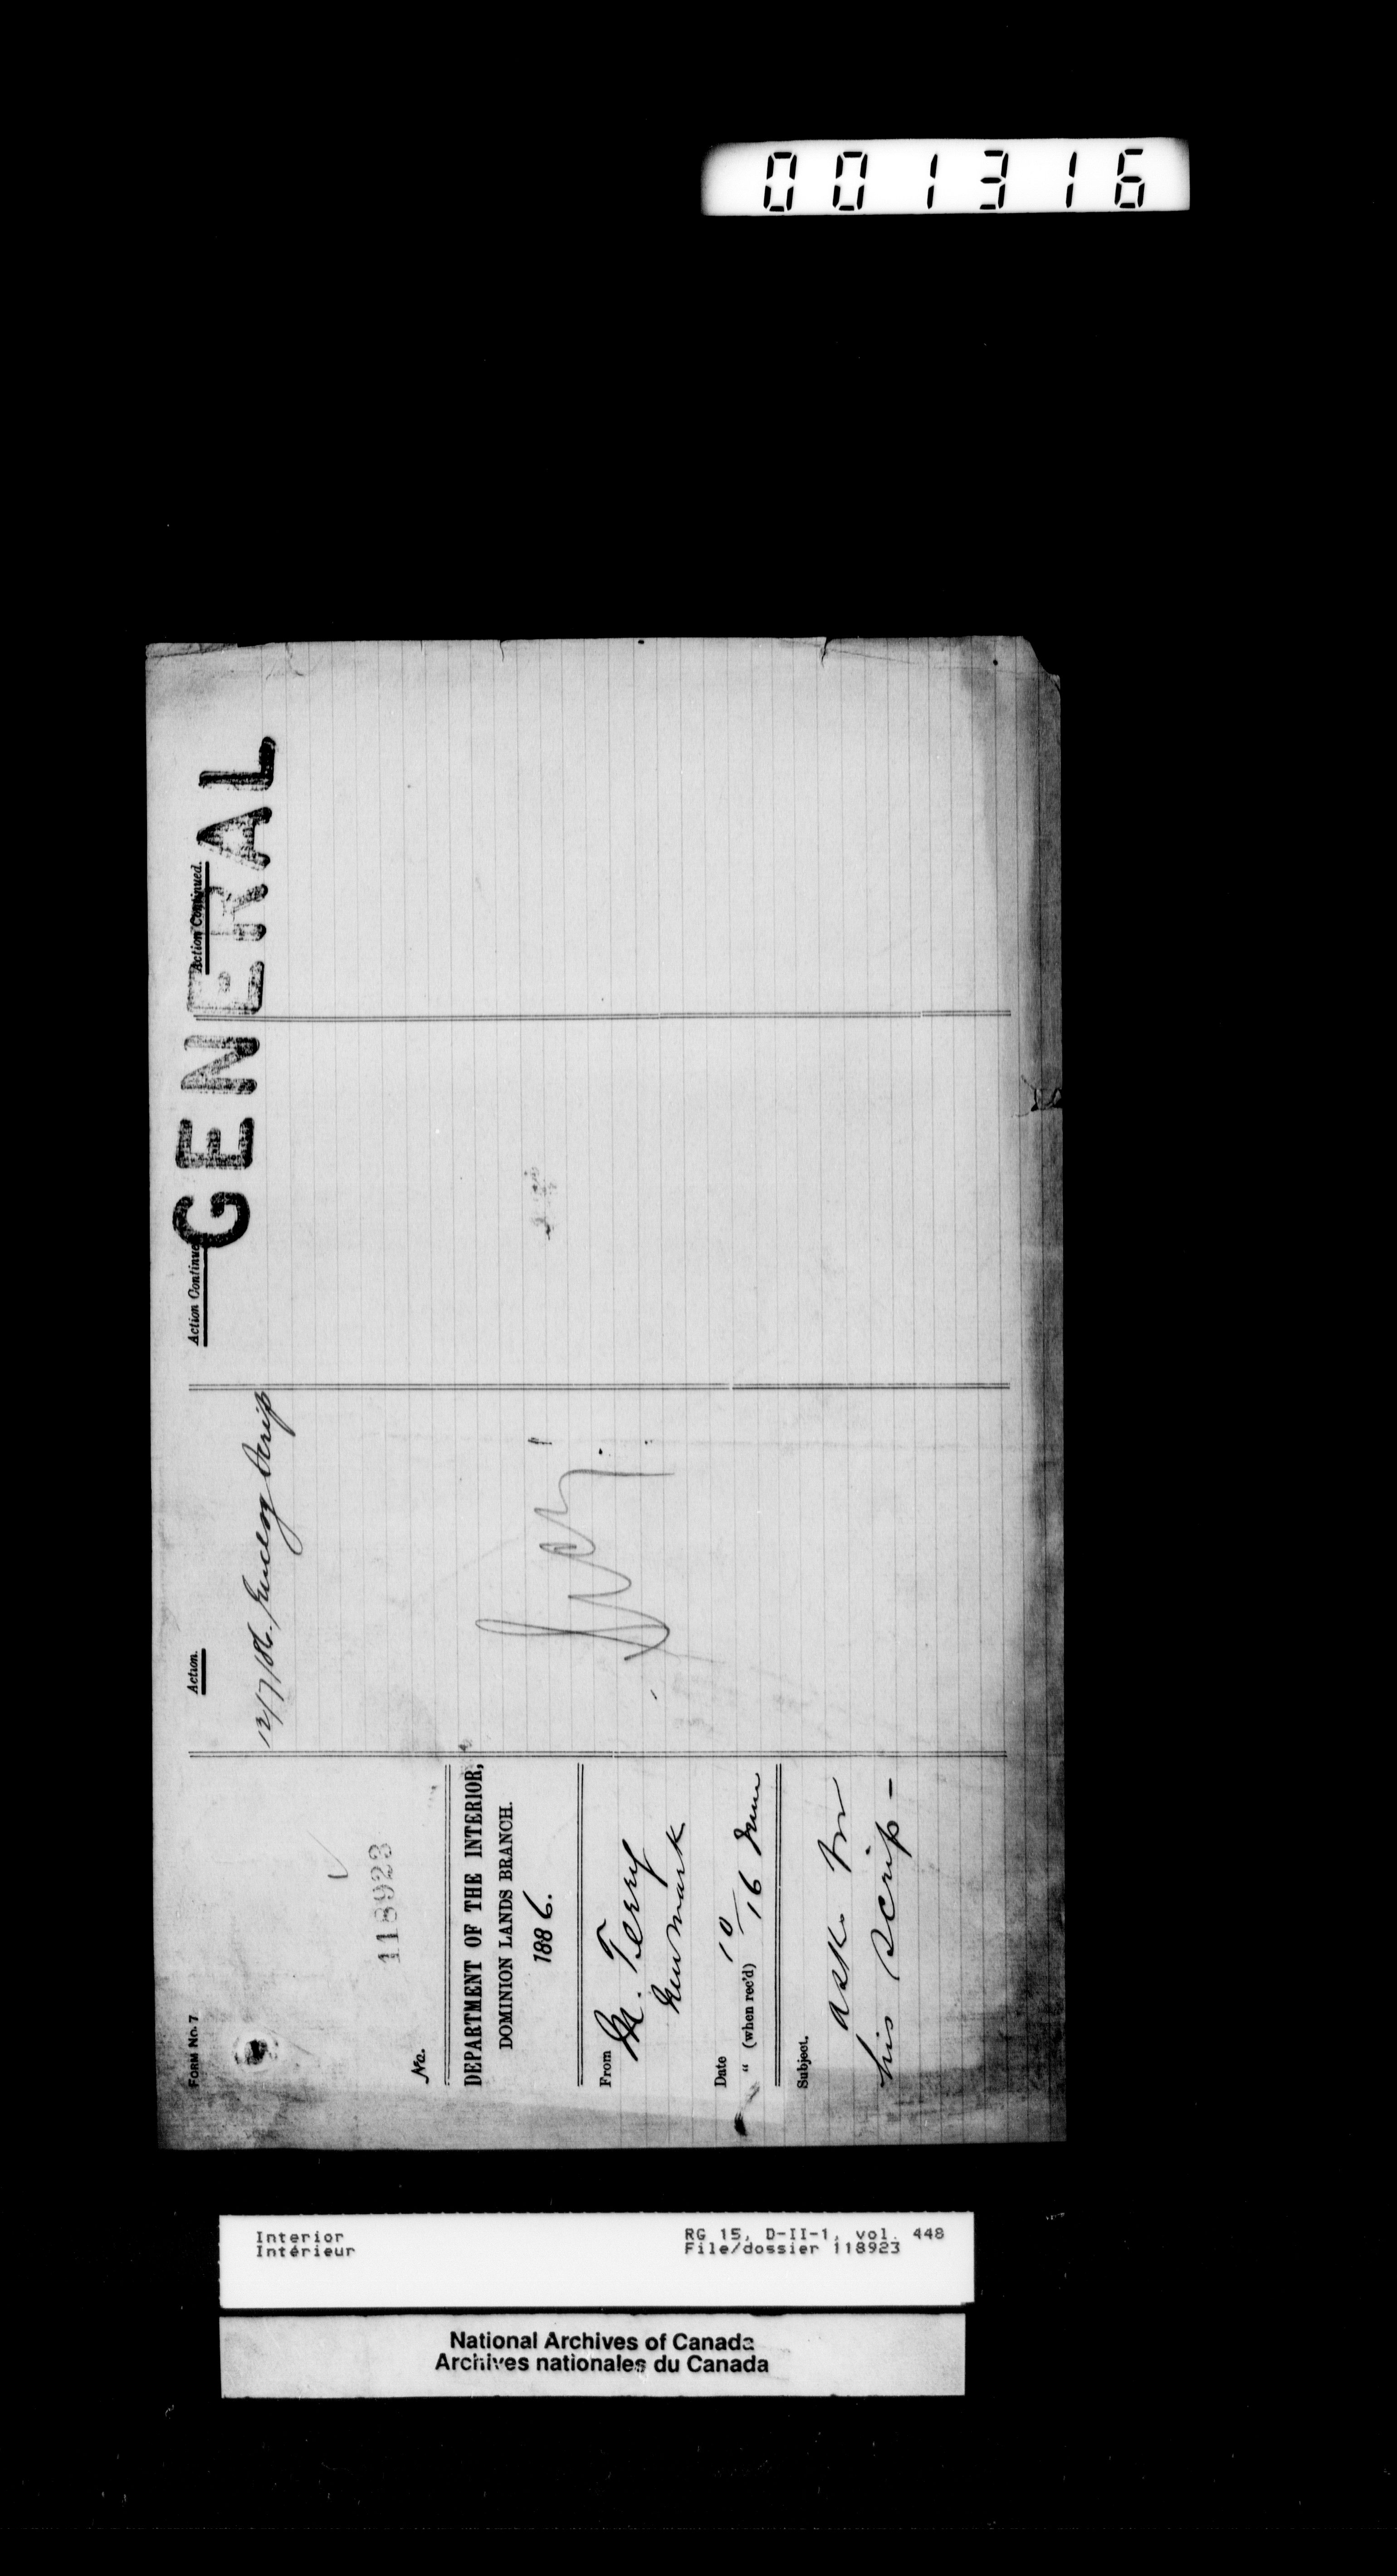 001316
FORM No. 7
118923
No.
DEPARTMENT OF THE INTERIOR,
DOMINION LANDS BRANCH.
1886.
From M. Terry
Newmark
Date 10
" (when rec'd) 16 June
Subject.
ask for
his scrip -
Action.
12/7/86. Encg Scrip
Action Continue
Action Continued.
GENERAL
Interior
Intérieur
RG 15, D-II-1, vol. 448
File/dossier 118923
National Archives of Canada
Archives nationales du Canada